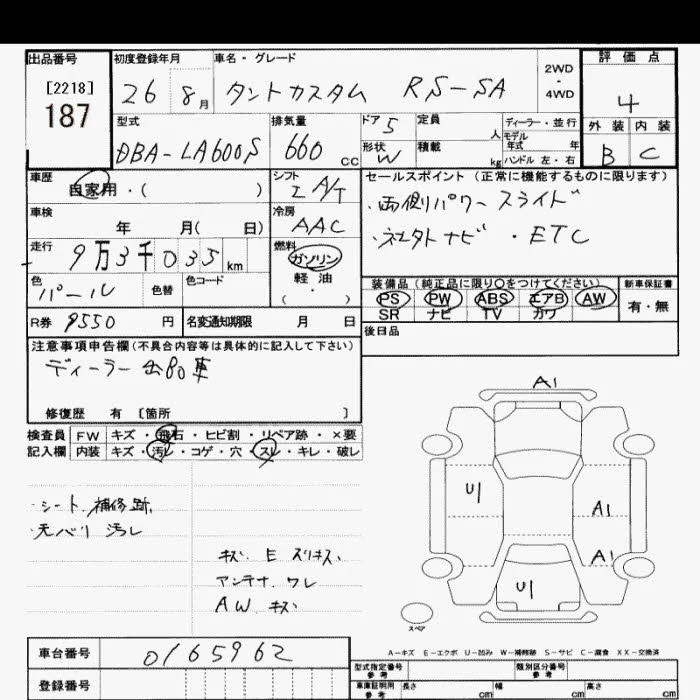 出品番号 初度登録年月 車名・グレード 2WD・4WD 評価点
[2218]
187
26 8月 タントカスタム RS-SA 4
型式 排気量 ドア 5 定員 人 ディーラー・並行 外装 内装
DBA-LA600S 660 CC 形状 W 積載 kg モデル年式 年 ハンドル 左・右 B C
車歴 自家用・( ) シフト I A/T セールスポイント(正常に機能するものに限ります)
車検 年 月( 日) 冷房 AAC ・両側パワースライド
走行 9万3千035km 燃料 ガソリン 軽油 ・( ) ・社外ナビ ・ETC
色 パール 色替 色コード
装備品(純正品に限り○をつけてください) 新車保証書
PS PW ABS エアB AW 有・無
SR ナビ TV カワ
R券 9550 円 名変通知期限 月 日 後日品
注意事項申告欄(不具合内容等は具体的に記入して下さい)
ディーラー出品車
修復歴 有 [箇所 ]
検査員 FW キズ・飛石・ヒビ割・リペア跡・×要
記入欄 内装 キズ・汚レ・コゲ・穴・スレ・キレ・破レ
A1
U1
A1
A1
U1
・シート 補修跡、
・天バリ 汚レ
キズ E スリキズ、
アンテナ ワレ
AW キズ
スペア
A-キズ E-エクボ U-凹み W-補修跡 S-サビ C-腐食 XX-交換済
車台番号 0165962
型式指定番号 参考 類別区分番号 参考
登録番号 車庫証明用 参考 長さ cm 幅 cm 高さ cm